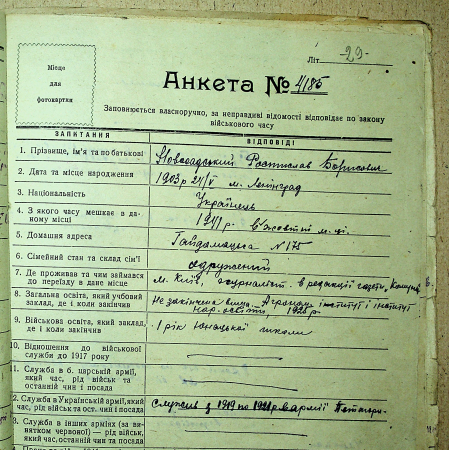 -29-
Літ.
Місце
для
фотокартки
Анкета № 4185
Заповнюється власноручно, за неправдиві відомості відповідає по закону
військового часу
ЗАПИТАННЯ
ВІДПОВІДІ
1. Прізвище, ім'я та по батькові
Ростислав Борисович
2. Дата та місце народження
1903 р 24/V м. Ленінград
3. Національність
Українець
4. З якого часу мешкає в даному місці
1941 р. в жовтні м-ці.
5. Домашня адреса
Гайдамацька № 175
6. Сімейний стан та склад сім'ї
одружений
7. Де проживав та чим займався
до переїзду в дане місце
м. Київ, журналіст. в редакції газети,
8. Загальна освіта, який учбовий
заклад, де і коли закінчив
Незакінчена вища. Аграрном. інститут і інститут
нар. освіти 1928 р.
9. Військова освіта, який заклад,
де і коли закінчив
1 рік Юнацької школи
10. Відношення до військової
служби до 1917 року
11. Служба в б. царській армії,
який час, рід військ та
останній чин і посада
2. Служба в Українській армії, який
час, рід військ та ост. чин і посада
Служив з 1919 по 1921 р в армії
3. Служба в інших арміях (за ви-
нятком червоної) — рід військ,
який час, останній чин та посада